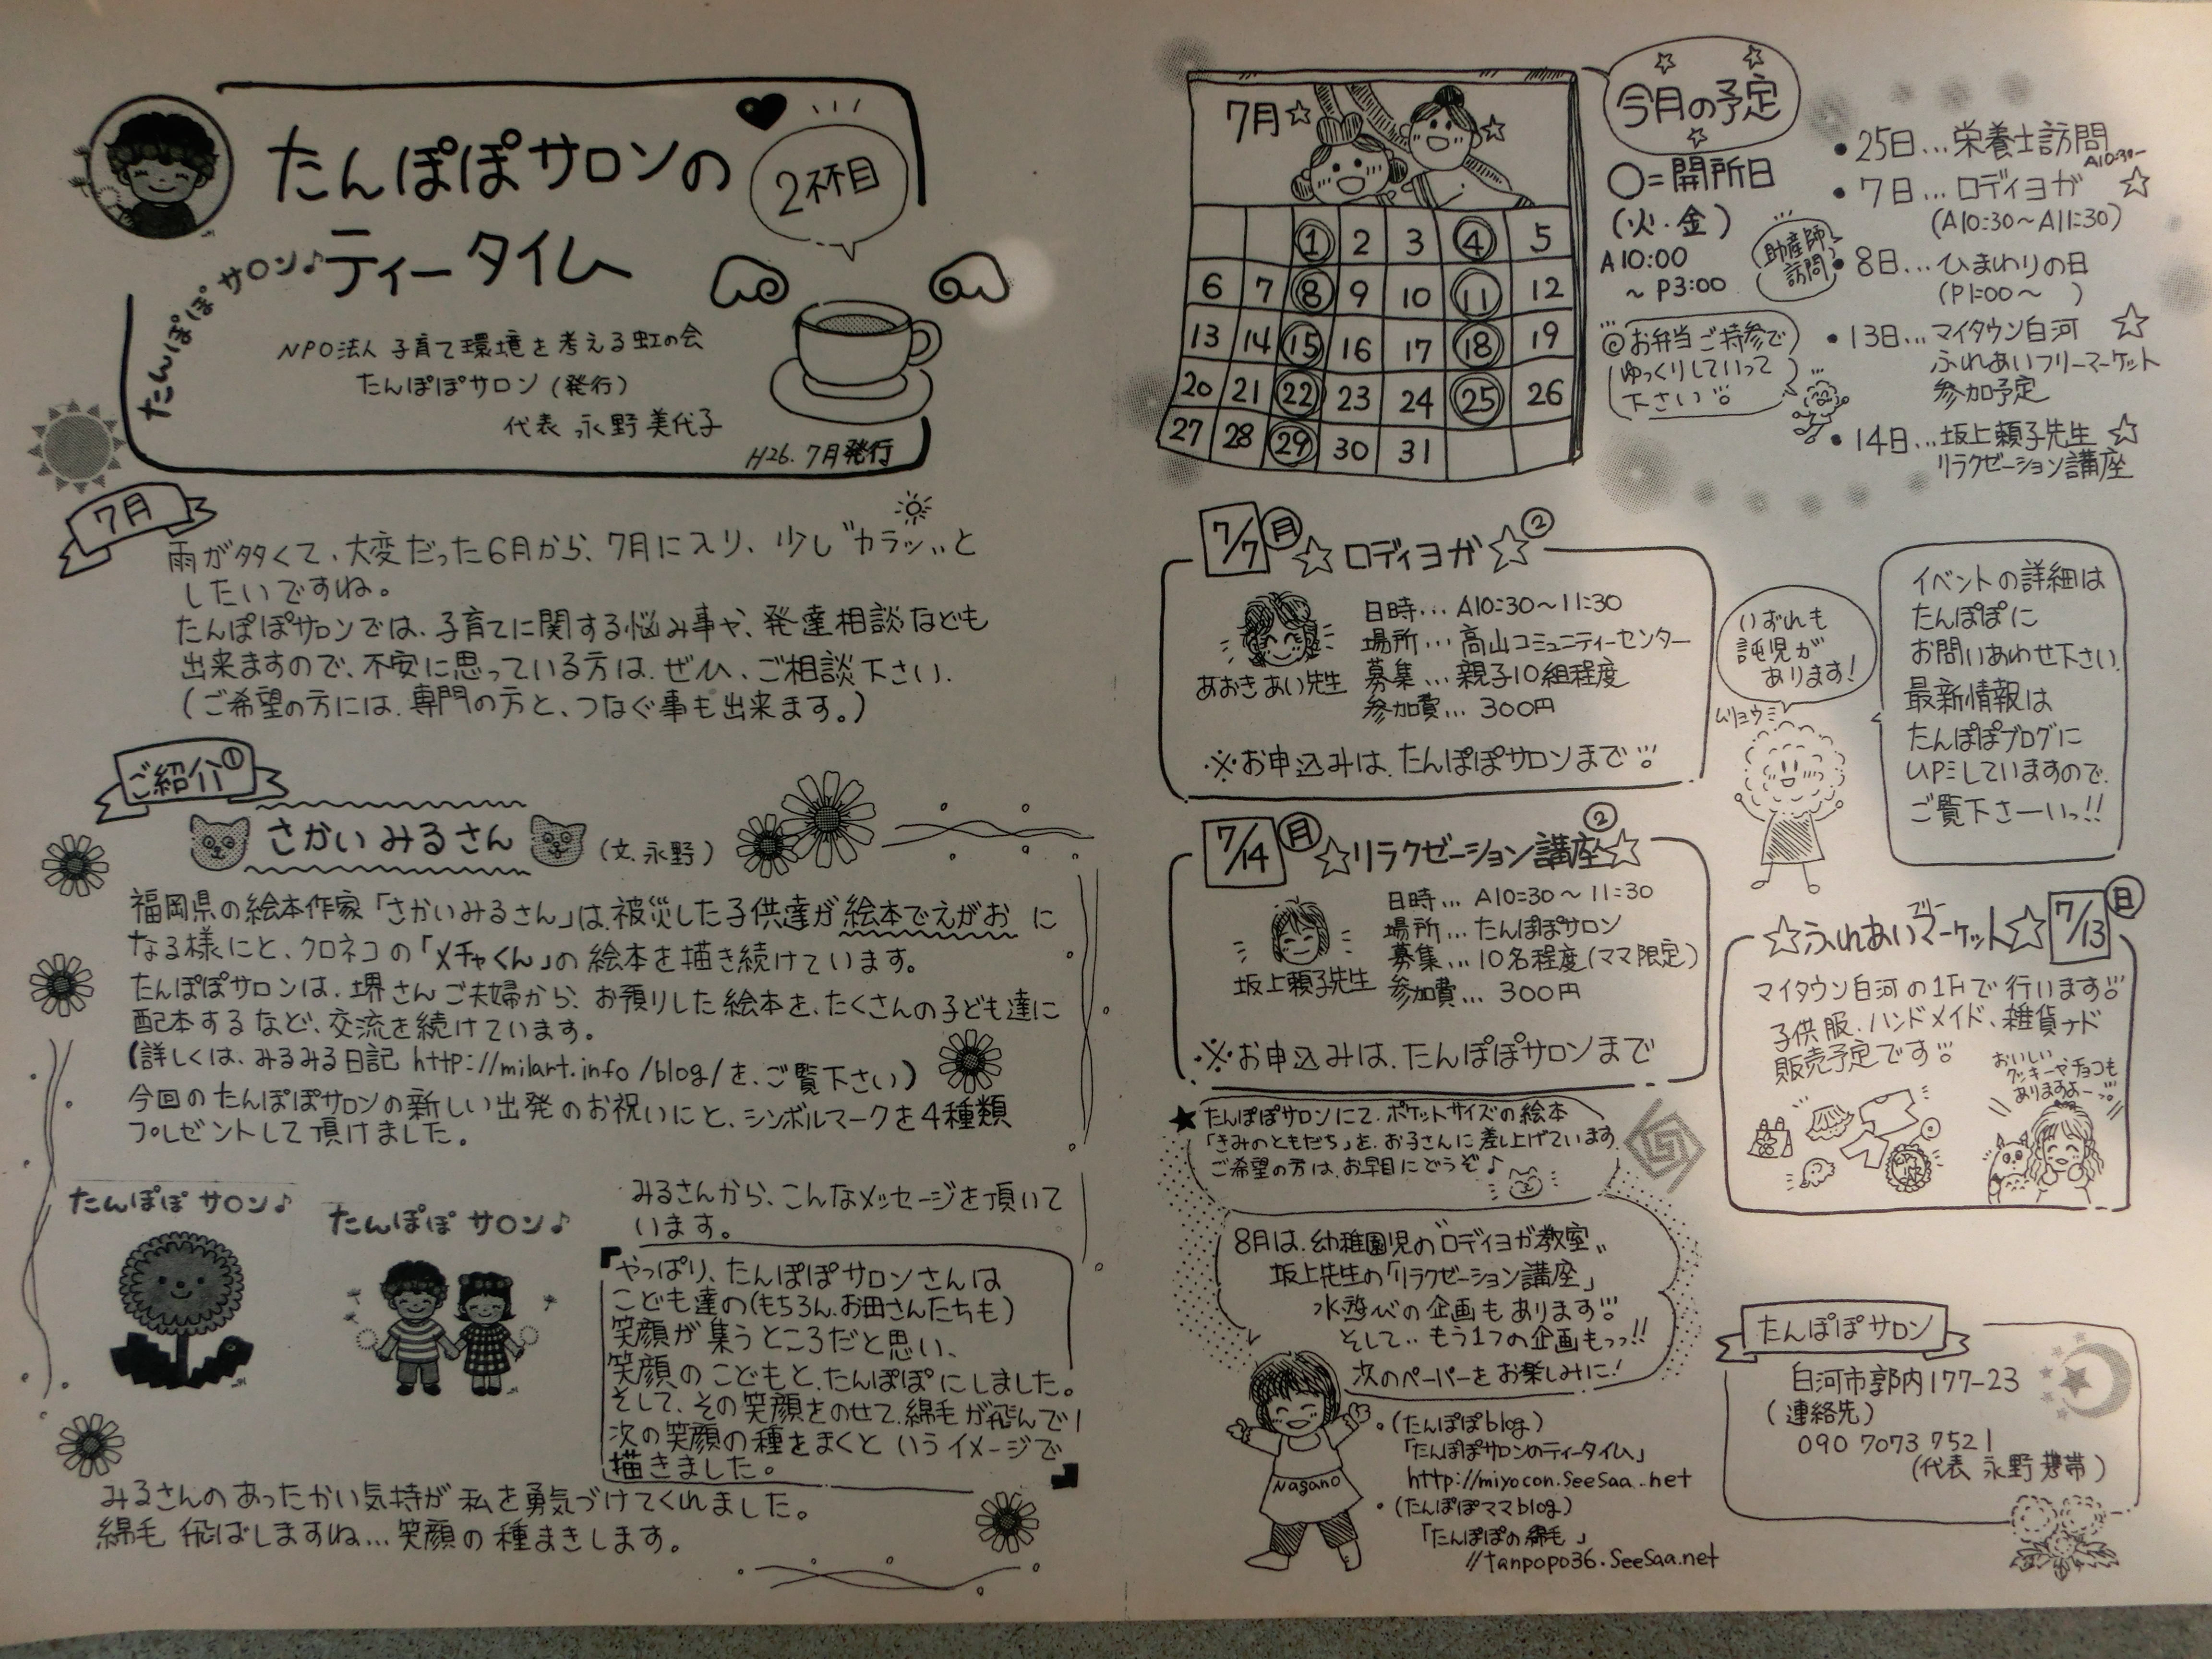 たんぽぽサロンの
ティータイム
2杯目
たんぽぽサロン♪
NPO法人 子育て環境を考える虹の会
たんぽぽサロン (発行)
代表 永野美代子
H26. 7月発行
7月
雨が多くて、大変だった6月から、7月に入り、少し〝カラッ〟と
したいですね。
たんぽぽサロンでは、子育てに関する悩み事や、発達相談なども
出来ますので、不安に思っている方は、ぜひ、ご相談下さい。
(ご希望の方には、専門の方と、つなぐ事も出来ます。)
ご紹介①
さかい みるさん
(文、永野)
福岡県の絵本作家「さかいみるさん」は、被災した子供達が絵本でえがお に
なる様にと、クロネコの「メチャくん」の絵本を描き続けています。
たんぽぽサロンは、堺さんご夫婦から、お預りした絵本を、たくさんの子ども達に
配本するなど、交流を続けています。
(詳しくは、みるみる日記 http://milart.info/blog/を、ご覧下さい)
今回のたんぽぽサロンの新しい出発のお祝いにと、シンボルマークを4種類
プレゼントして頂けました。
たんぽぽ サロン♪
たんぽぽ サロン♪
みるさんから、こんなメッセージを頂いて
います。
『やっぱり、たんぽぽサロンさんは
こども達の(もちろん、お母さんたちも)
笑顔が集うところだと思い、
笑顔のこどもと、たんぽぽにしました。
そして、その笑顔をのせて、綿毛が飛んで
次の笑顔の種をまくと いうイメージで
描きました。』
みるさんのあったかい気持が私を勇気づけてくれました。
綿毛 飛ばしますね…笑顔の種まきします。
7月☆
1 2 3 4 5
6 7 8 9 10 11 12
13 14 15 16 17 18 19
20 21 22 23 24 25 26
27 28 29 30 31
今月の予定
○=開所日
(火・金)
A10:00
～P3:00
@お弁当ご持参で
ゆっくりしていって
下さい
•25日…栄養士訪問
A10:30～
•7日…ロディヨガ ☆
(A10:30～A11:30)
助産師
訪問
•8日…ひまわりの日
(P1:00～ )
•13日…マイタウン白河 ☆
ふれあいフリーマーケット
参加予定
•14日…坂上頼子先生 ☆
リラクゼーション講座
7/7 月 ☆ロディヨガ☆②
日時… A10:30～11:30
場所… 高山コミュニティーセンター
募集… 親子10組程度
参加費… 300円
あおき あい先生
※お申込みは、たんぽぽサロンまで
いずれも
託児が
あります!
ムリョウ
イベントの詳細は
たんぽぽに
お問いあわせ下さい。
最新情報は
たんぽぽブログに
UPしていますので、
ご覧下さーいっ!!
7/14 月 ☆リラクゼーション講座☆②
日時… A10:30～11:30
場所… たんぽぽサロン
募集… 10名程度(ママ限定)
参加費… 300円
坂上頼子先生
※お申込みは、たんぽぽサロンまで
☆ふれあいフリーマーケット☆ 7/13 日
マイタウン白河の1Fで行います
子供服、ハンドメイド、雑貨ナド
販売予定です
おいしい
クッキーやチョコも
ありますよー
★たんぽぽサロンにて、ポケットサイズの絵本
「きみのともだち」を、お子さんに差し上げています。
ご希望の方は、お早目にどうぞ♪
8月は、幼稚園児の〝ロディヨガ教室〟
坂上先生の「リラクゼーション講座」
水遊びの企画もあります
そして‥もう1つの企画もっっ!!
次のペーパーをお楽しみに!
Nagano
•(たんぽぽblog)
「たんぽぽサロンのティータイム」
http://miyocon.seesaa.net
•(たんぽぽママblog)
「たんぽぽの綿毛」
//tanpopo36.seesaa.net
たんぽぽサロン
白河市郭内177-23
(連絡先)
090 7073 7521
(代表 永野携帯)